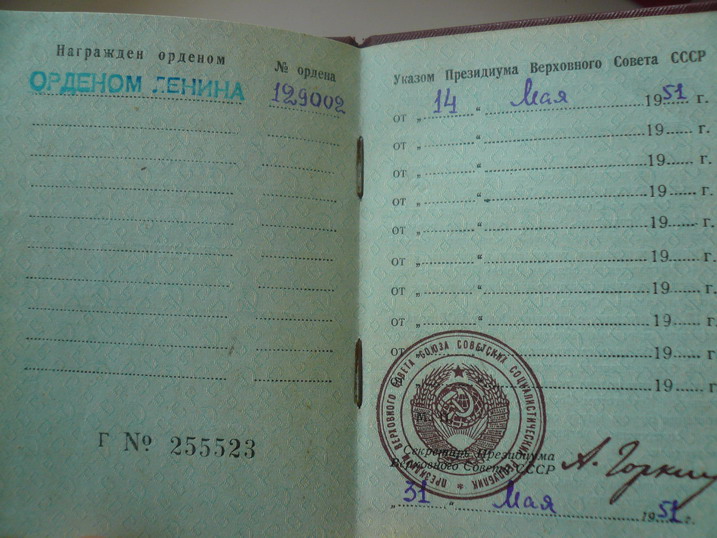 Награжден орденом
№ ордена
ОРДЕНОМ ЛЕНИНА
129002
Г № 255523
Указом Президиума Верховного Совета СССР
от „ 14 “ Мая 1951 г.
от „ “ 19 г.
от „ “ 19 г.
от „ “ 19 г.
от „ “ 19 г.
от „ “ 19 г.
от „ “ 19 г.
от „ “ 19 г.
от „ “ 19 г.
19 г.
ПРЕЗИДИУМ ВЕРХОВНОГО СОВЕТА СОЮЗА СОВЕТСКИХ СОЦИАЛИСТИЧЕСКИХ РЕСПУБЛИК
Секретарь Президиума
Верховного Совета СССР
А. Горкин
„ 31 “ Мая 1951 г.